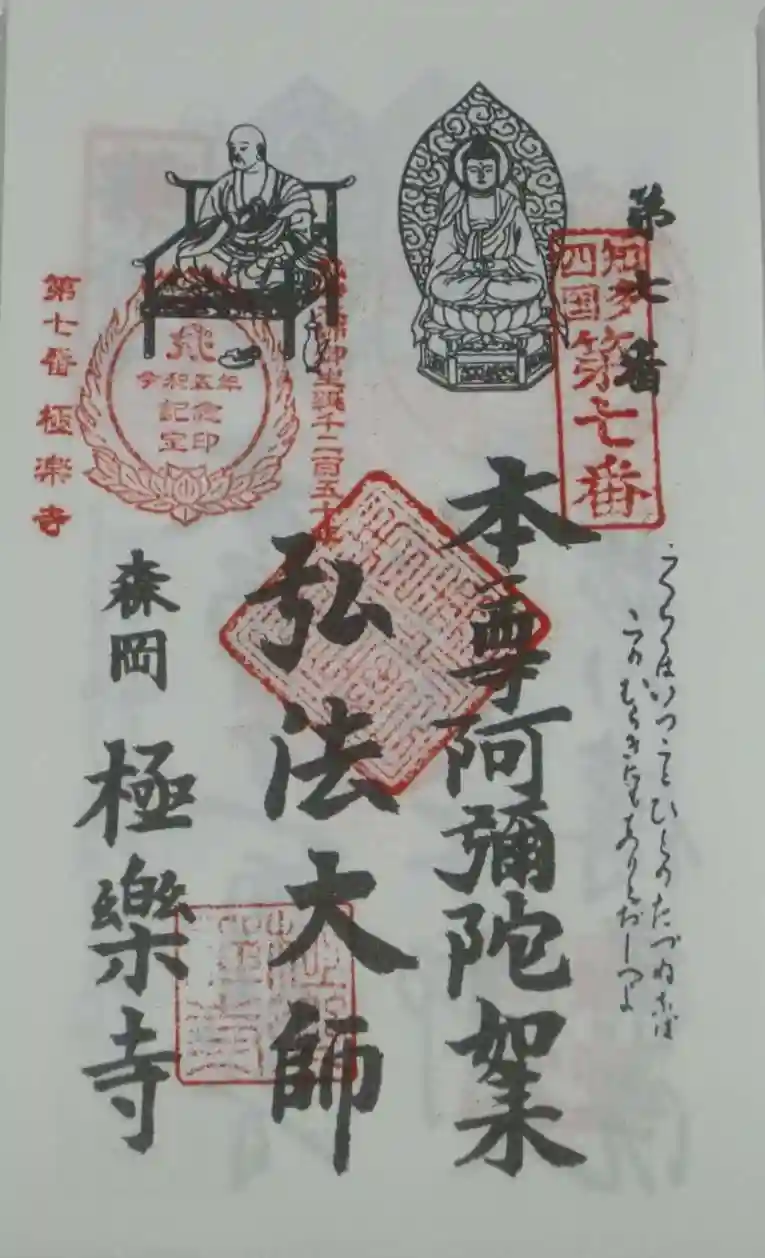 第七番
知多
四国
第七番
こくらくはいつことひとのたづねなば
本尊阿彌陀如来
弘法大師御生誕千二百五十年
弘法大師
令和五年
記念
宝印
森岡 極樂寺
第七番 極楽寺